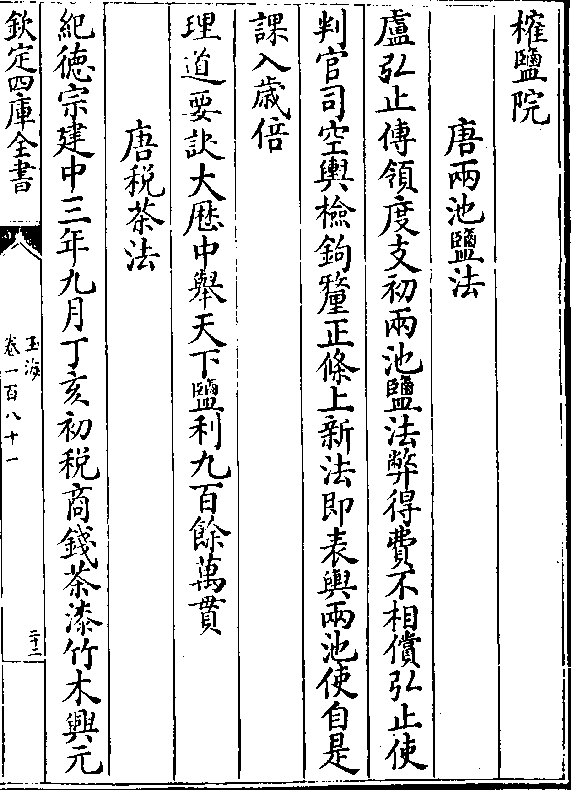 榷鹽院
唐兩池鹽法
盧弘止傳領度支初兩池鹽法弊得費不相償弘止使
判官司空輿檢鉤釐正條上新法即表輿兩池使自是
課入歲倍
理道要訣大厯中舉天下鹽利九百餘萬貫
唐税茶法
紀德宗建中三年九月丁亥初税商錢茶漆竹木興元
欽定四庫全書
玉海
卷一百八十一
二十二